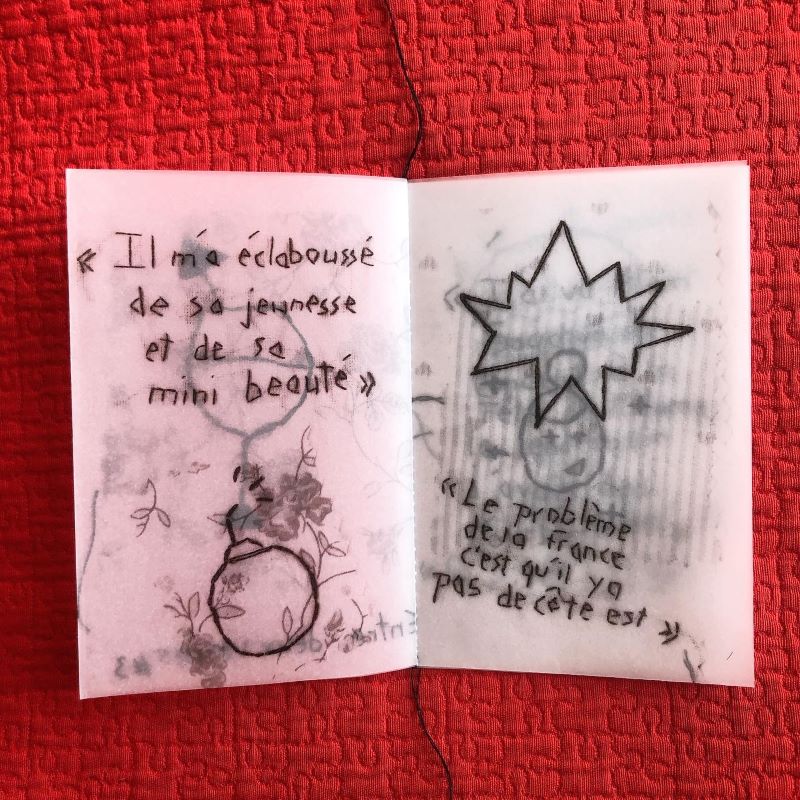 « Il m'a éclaboussé
de sa jeunesse
et de sa
mini beauté »
« Le problème
de la france
c'est qu'il ya
pas de côte est »
#3